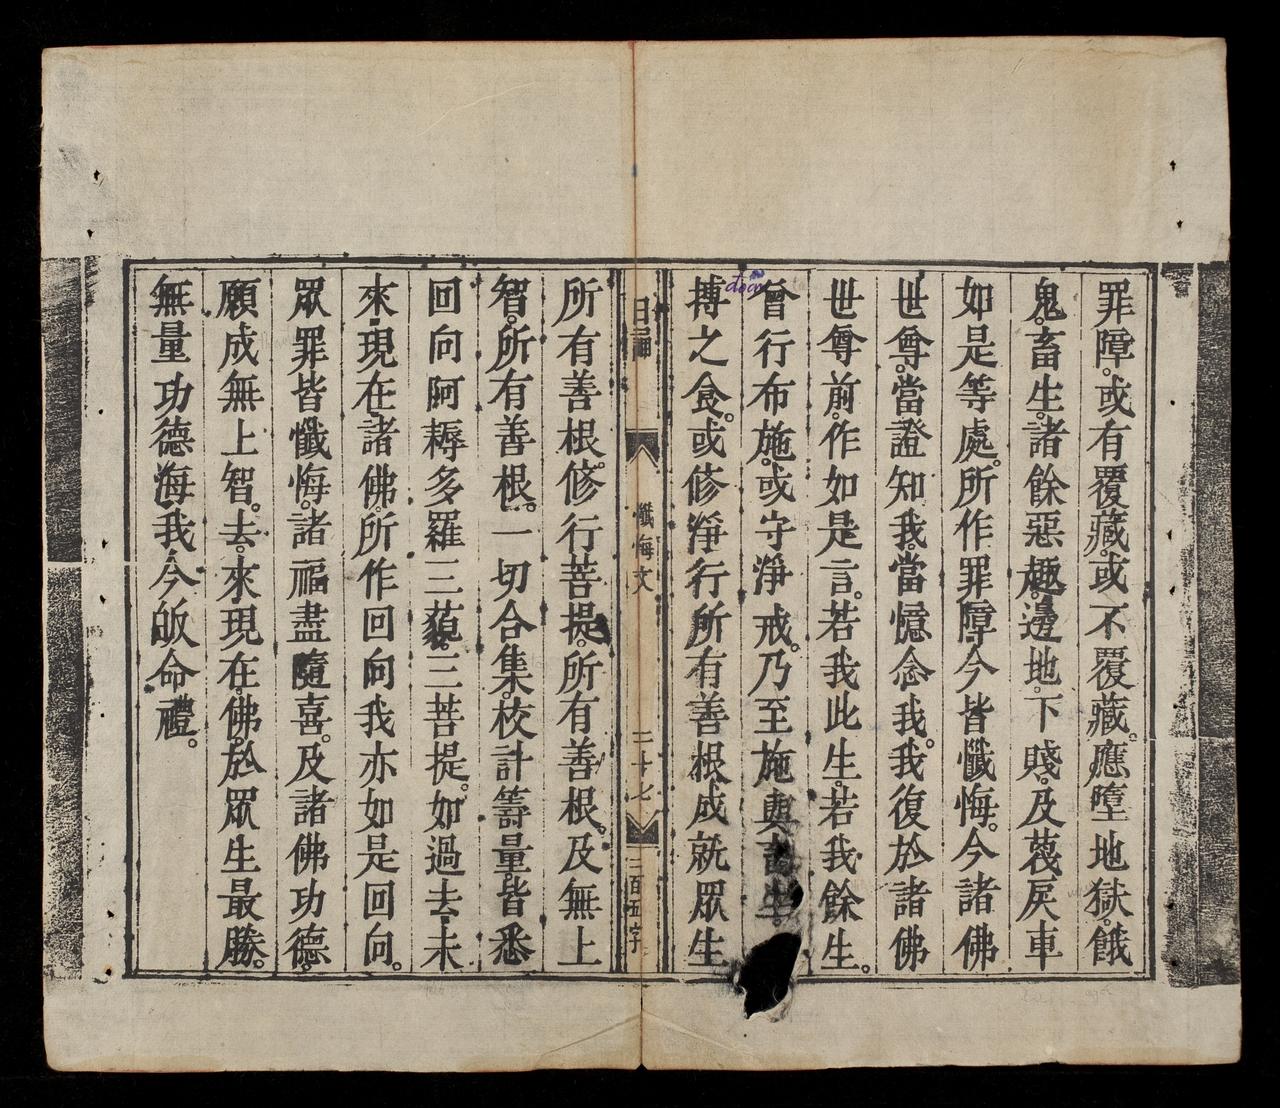 罪障。或有覆藏。或不覆藏。應墮地獄。餓
鬼。畜生。諸餘惡趣。邊地。下賤。及蔑戾車
如是等處。所作罪障今皆懺悔。今諸佛
世尊。當證知我。當憶念我。我復於諸佛
世尊前。作如是言。若我此生。若我餘生。
曾行布施。或守淨戒。乃至施與
摶之食。或修淨行所有善根成就眾生
日誦
懺悔文
二十七
三百五字
所有善根。修行菩提。所有善根。及無上
智。所有善根。一切合集。校計籌量。皆悉
回向阿耨多羅三藐。三菩提。如過去。未
來。現在諸佛。所作回向我亦如是回向。
眾罪皆懺悔。諸福盡隨喜。及諸佛功德。
願成無上智。去。來現在。佛於眾生最勝。
無量功德海。我今皈命禮。